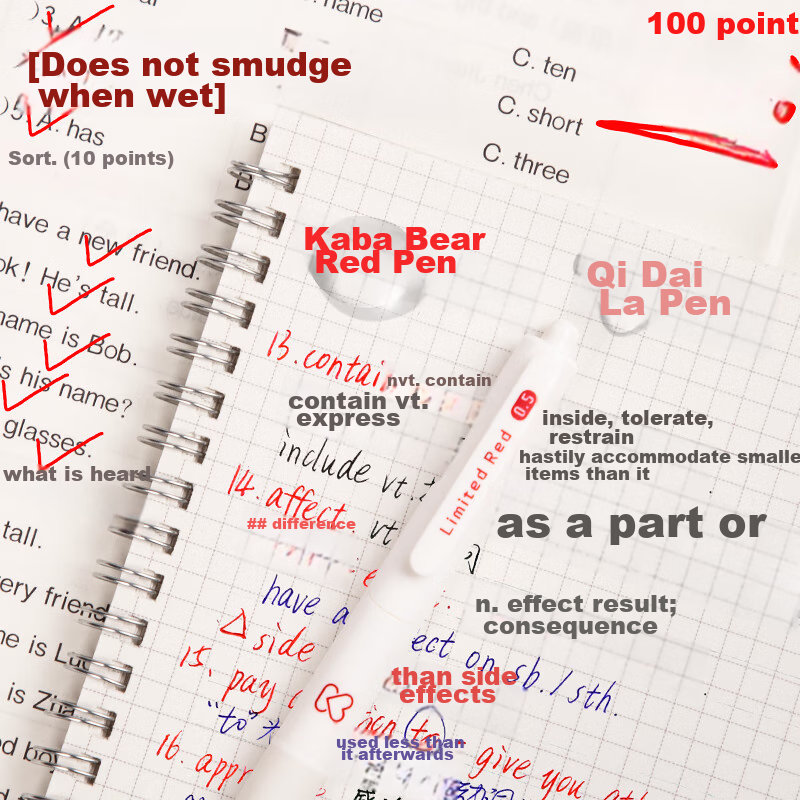 name
100 point
[Does not smudge
when wet]
C. ten
C. short
C. three
5. A. has
B
Sort. (10 points)
B
have a new friend.
ok! He's tall.
name is Bob.
s his name?
glasses.
what is heard
tall.
ery friend
ne is Luc
is Zha
d boy
Kaba Bear
Red Pen
Qi Dai
La Pen
13. contai
nvt. contain
contain vt.
express
inside, tolerate,
restrain
hastily accommodate smalle
items than it
include vt.
0.5
Limited Red
14. affect vt
## difference
as a part or
n. effect result;
consequence
have a
ect on sb. / sth.
△ side
than side
effects
15. pay
"to"
used less than
it afterwards
give you
16. appr